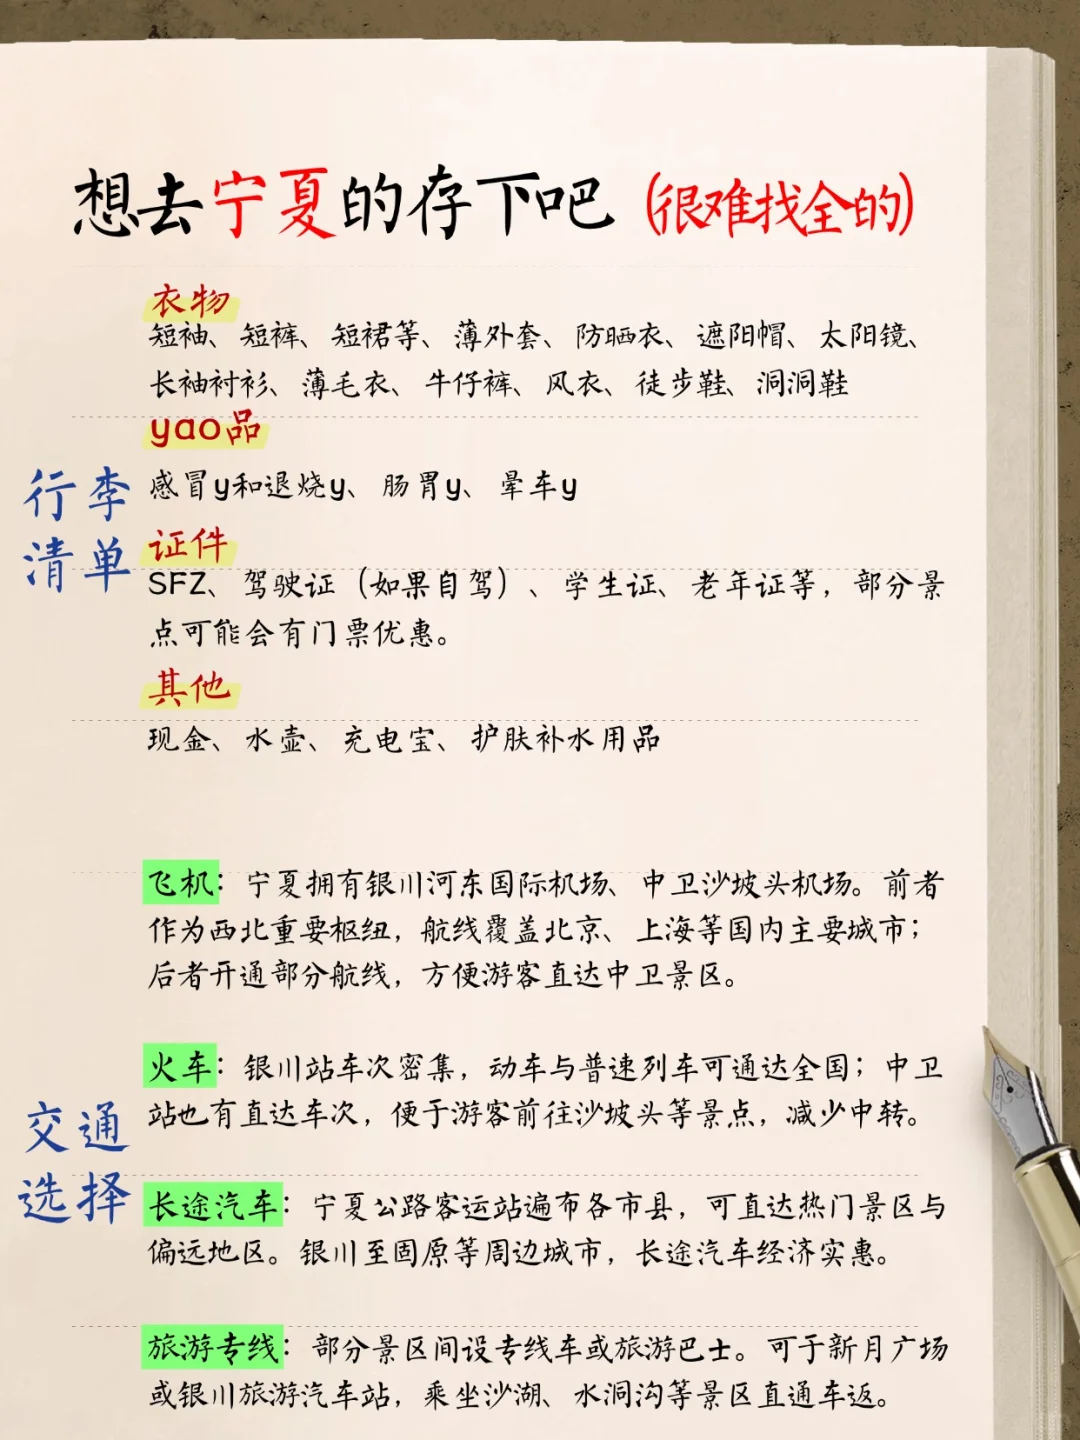 想去宁夏的存下吧（很难找全的）
行李
清单
衣物
短袖、短裤、短裙等、薄外套、防晒衣、遮阳帽、太阳镜、
长袖衬衫、薄毛衣、牛仔裤、风衣、徒步鞋、洞洞鞋
yao品
感冒y和退烧y、肠胃y、晕车y
证件
SFZ、驾驶证（如果自驾）、学生证、老年证等，部分景
点可能会有门票优惠。
其他
现金、水壶、充电宝、护肤补水用品
交通
选择
飞机：宁夏拥有银川河东国际机场、中卫沙坡头机场。前者
作为西北重要枢纽，航线覆盖北京、上海等国内主要城市；
后者开通部分航线，方便游客直达中卫景区。
火车：银川站车次密集，动车与普速列车可通达全国；中卫
站也有直达车次，便于游客前往沙坡头等景点，减少中转。
长途汽车：宁夏公路客运站遍布各市县，可直达热门景区与
偏远地区。银川至固原等周边城市，长途汽车经济实惠。
旅游专线：部分景区间设专线车或旅游巴士。可于新月广场
或银川旅游汽车站，乘坐沙湖、水洞沟等景区直通车返。